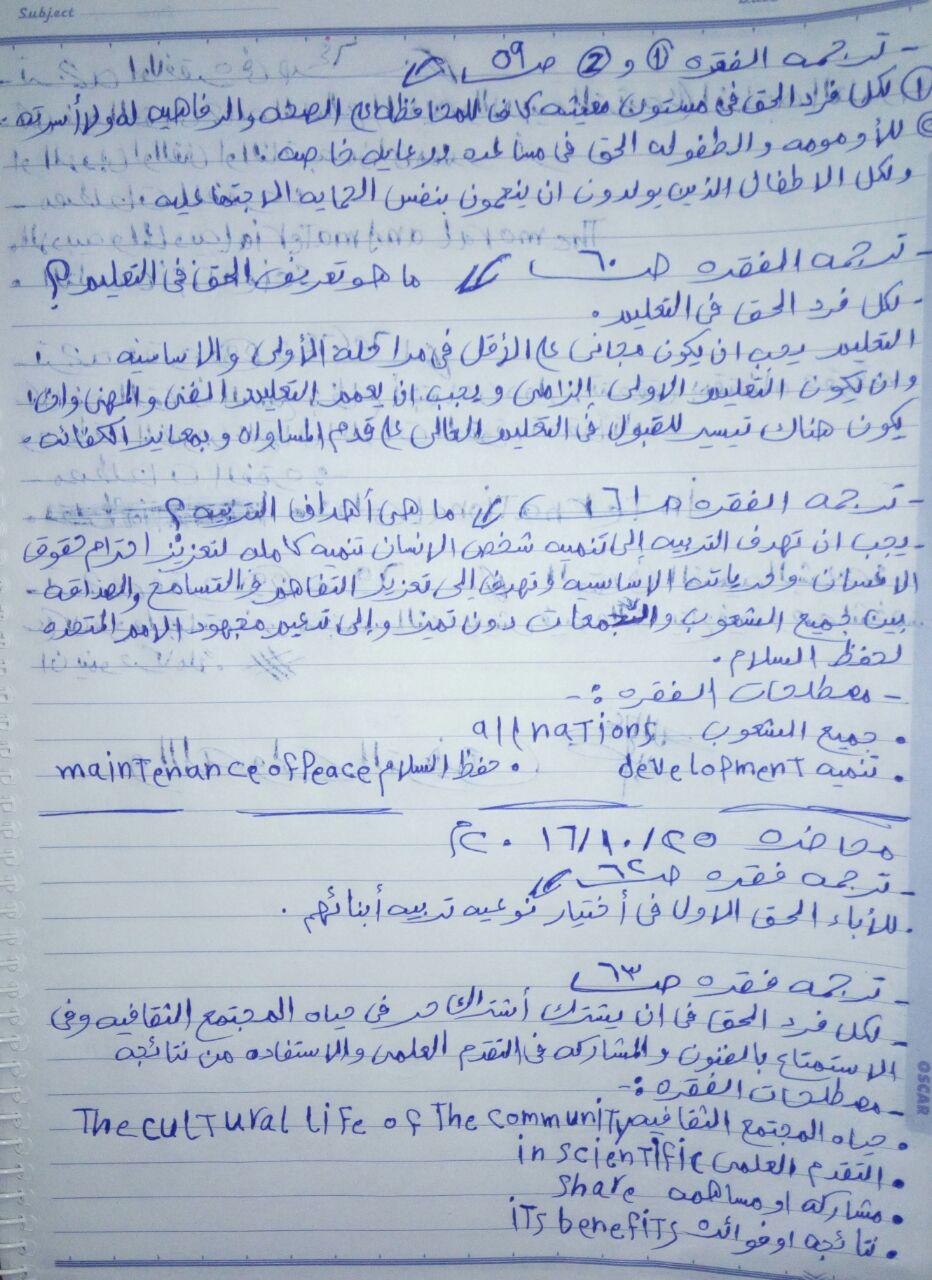 Subject
- ترجمه الفقره ① و ② صـ ٥٩
① لكل فراد الحق في مستوى معيشه كافى للمحافظه على الصحه والرفاهيه له ولأسرته.
② للأومومه والطفوله الحق فى مساعده ورعايه خاصه.
ولكل الاطفال الذين يولدون ان ينعمون بنفس الحمايه الاجتماعيه
- ترجمه الفقره صـ ٦٠ ما هو تعريف الحق في التعليم؟
- لكل فرد الحق في التعليم.
التعليم يجب ان يكون مجانى على الأقل في مراحله الأولى والاساسيه
وان يكون التعليم الاولى الزامى ويجب ان يعمم التعليم الفنى والمهنى وان
يكون هناك تيسير للقبول فى التعليم العالى على قدم المساواه وبمعايير الكفائه.
- ترجمه الفقره صـ ٦١ ما هى أهداف التربيه؟
- يجب ان تهدف التربيه إلى تنميه شخص الإنسان تنميه كامله لتعزيز احترام حقوق
الانسان وحرياته الاساسيه وتهدف إلى تعزيز التفاهم والتسامح والصداقه
بين جميع الشعوب والجمعات دون تميز وإلى تدعيم مجهود الامم المتحده
لحفظ السلام.
- مصطلحات الفقره :-
• جميع الشعوب all nations
• تنميه development • حفظ السلام maintenance of Peace
محاضره ٢٥/١٠/٢٠١٦م
- ترجمه فقره صـ ٦٢
. للأباء الحق الاول فى أختيار نوعيه تربيه أبنائهم.
- ترجمه فقره صـ ٦٣
- لكل فرد الحق فى ان يشترك أشتراك حر فى حياه المجتمع الثقافيه وفى
الاستمتاع بالفنون والمشاركه فى التقدم العلمى والاستفاده من نتائجه
- مصطلحات الفقره :-
• حياه المجتمع الثقافيه The cultural life of The community
• التقدم العلمى in scientific
• مشاركه او مساهمه share
• نتائجه او فوائد its benefits
OSCAR